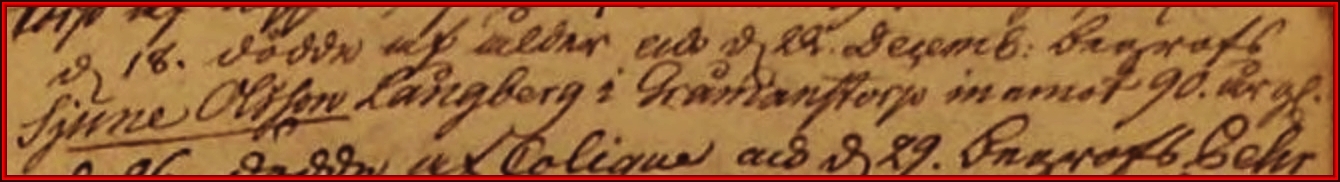 d 18. dödde af ålder och d 22. Decemb: begrofs
Sjune Olsson Långberg i Gråmanstorp inemot 90. år gl.
d 26. dödde af Colique och d 29. begrofs Pehr